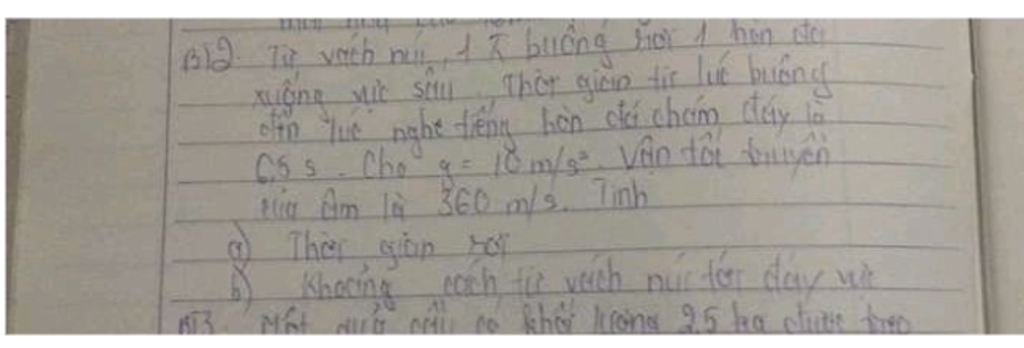 BT2 Từ vách núi, 1 buông rơi 1 hòn đá
xuống vực sâu. Thời gian từ lúc buông
đến lúc nghe tiếng hòn đá chạm đáy là
6,5 s. Cho g = 10 m/s². Vận tốc truyền
của âm là 360 m/s. Tính
a) Thời gian rơi
b) Khoảng cách từ vách núi tới đáy vực
BT3. Một quả cầu có khối lượng 2,5 kg được treo